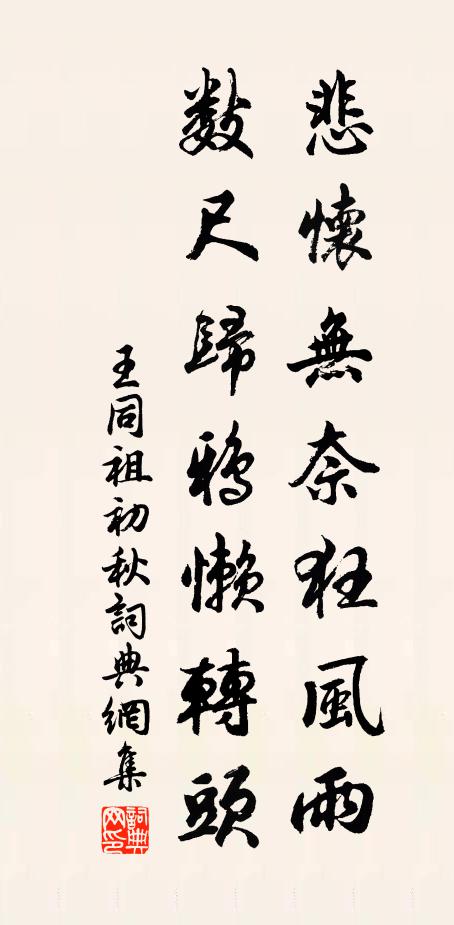 悲懷無奈狂風雨
數尺歸鴉懶轉頭
王同祖初秋詞典網集
詞典網印